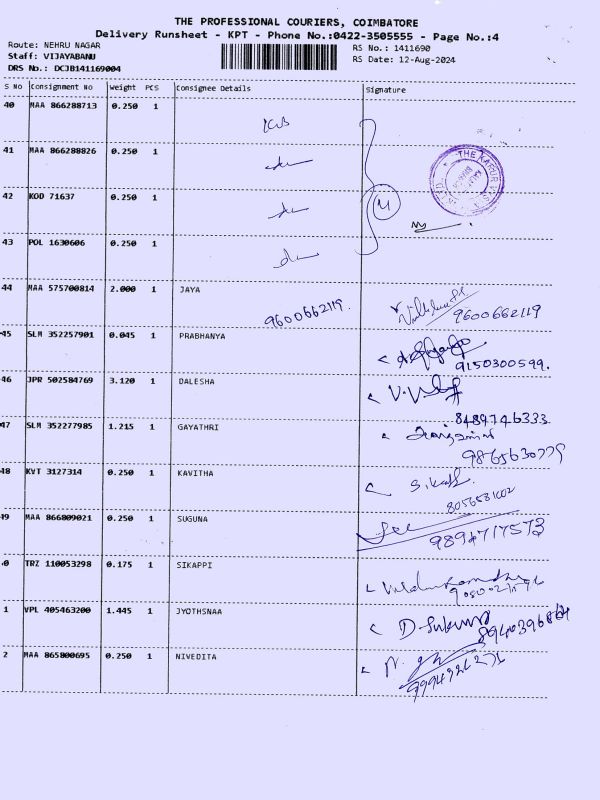 THE PROFESSIONAL COURIERS, COIMBATORE
Delivery Runsheet - KPT - Phone No.:0422-3505555 - Page No.:4
Route: NEHRU NAGAR RS No.: 1411690
Staff: VIJAYABANU RS Date: 12-Aug-2024
DRS No.: DCJB141169004
S No Consignment No Weight PCS Consignee Details Signature
40 MAA 866288713 0.250 1
41 MAA 866288826 0.250 1
THE KARUR VYSYA
42 KOD 71637 0.250 1
43 POL 1630606 0.250 1
44 MAA 575700814 2.000 1 JAYA
9600662119. 9600662119
45 SLM 352257901 0.045 1 PRABHANYA
9150300599.
46 JPR 502584769 3.120 1 DALESHA
8489746333
47 SLM 352277985 1.215 1 GAYATHRI
9865630779
48 KVT 3127314 0.250 1 KAVITHA
49 MAA 866809021 0.250 1 SUGUNA
9894717573
0 TRZ 110053298 0.175 1 SIKAPPI
1 VPL 405463200 1.445 1 JYOTHSNAA
2 MAA 865800695 0.250 1 NIVEDITA